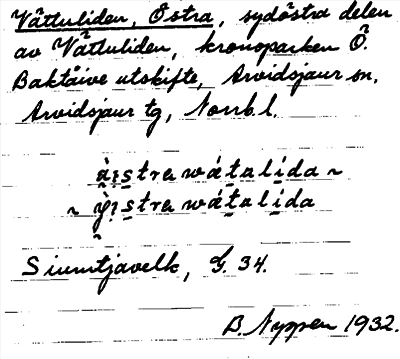 Vättuliden, Östra, sydöstra delen
av Vättuliden, kronoparken Ö.
Baktåive utskifte, Arvidsjaur sn,
Arvidsjaur tg, Norrb. l.
àı̨stra wátalída ~
~ ỳı̨stra wátalída
Siuntjavelk, G. 34.
B. Nyppen 1932.